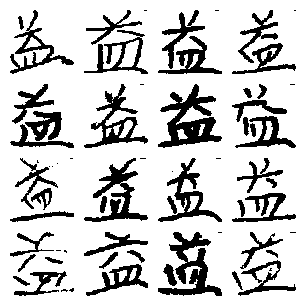 益益益益
益益益益
益益益益
益益益益